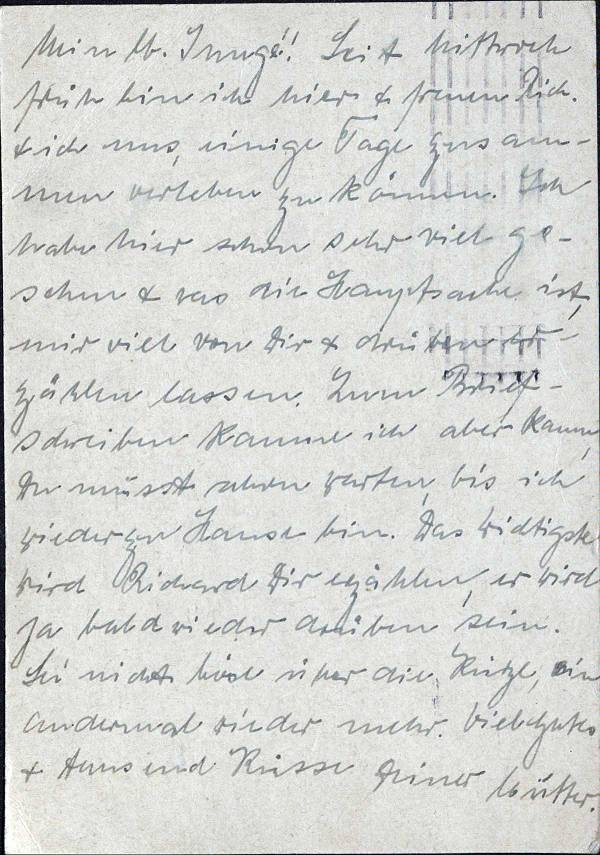 Mein lb. Junge! Seit Mittwoch
früh bin ich hier & freuen Rich.
& ich uns, einige Tage zusam-
men verleben zu können. Ich
habe hier schon sehr viel ge-
sehen & was die Hauptsache ist,
mir viel von Dir & drüben er-
zählen lassen. Zum Brief-
schreiben komme ich aber kaum,
Du musst schon warten, bis ich
wieder zu Hause bin. Das Wichtigste
wird Richard Dir erzählen, er wird
ja bald wieder drüben sein.
Sei nicht böse über die Kürze, ein
andermal wieder mehr. Viele Gutes
& tausend Küsse Deiner Mutter.